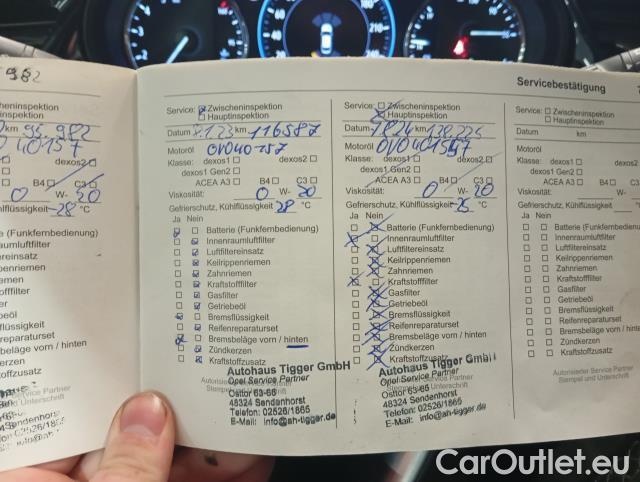 982
Servicebestätigung
cheninspektion
inspektion
km 95.982
040157
dexos2
B4 C3
0 W- 20
hlflüssigkeit -28 °C
e (Funkfernbedienung)
aumluftfilter
ltereinsatz
ppenriemen
iemen
offfilter
er
eöl
flüssigkeit
reparaturset
beläge vorn / hinten
erzen
offzusatz
Sendenhorst
02526/1865
Service: Zwischeninspektion
Hauptinspektion
Datum 8.1.23 km 116587
Motoröl OV040157
Klasse: dexos1 dexos2
dexos1 Gen2
ACEA A3 B4 C3
Viskosität: 0 W- 20
Gefrierschutz, Kühlflüssigkeit 28 °C
Ja Nein
Batterie (Funkfernbedienung)
Innenraumluftfilter
Luftfiltereinsatz
Keilrippenriemen
Zahnriemen
Kraftstofffilter
Gasfilter
Getriebeöl
Bremsflüssigkeit
Reifenreparaturset
Bremsbeläge vorn / hinten
Zündkerzen
Kraftstoffzusatz
Autohaus Tigger GmbH
Opel Service Partner
Osttor 63-65
48324 Sendenhorst
Telefon: 02526/1865
E-Mail: info@ah-tigger.de
Service: Zwischeninspektion
Hauptinspektion
Datum km
Motoröl
Klasse: dexos1 dexos2
dexos1 Gen2
ACEA A3 B4 C3
Viskosität: 0 W- 20
Gefrierschutz, Kühlflüssigkeit -25 °C
Ja Nein
Batterie (Funkfernbedienung)
Innenraumluftfilter
Luftfiltereinsatz
Keilrippenriemen
Zahnriemen
Kraftstofffilter
Gasfilter
Getriebeöl
Bremsflüssigkeit
Reifenreparaturset
Bremsbeläge vorn / hinten
Zündkerzen
Kraftstoffzusatz
Autohaus Tigger GmbH
Opel Service Partner
Osttor 63-65
48324 Sendenhorst
Telefon: 02526/1865
E-Mail: info@ah-tigger.de
Service: Zwischeninspektion
Hauptinspektion
Datum km
Motoröl
Klasse: dexos1
dexos1 Gen2
ACEA A3
Viskosität:
Gefrierschutz, Kühlflüssigkeit
Ja Nein
Batterie (Funkfernbedienung)
Innenraumluftfilter
Luftfiltereinsatz
Keilrippenriemen
Zahnriemen
Kraftstofffilter
Gasfilter
Getriebeöl
Bremsflüssigkeit
Reifenreparaturset
Bremsbeläge vorn / hinten
Zündkerzen
Kraftstoffzusatz
Autorisierter Service Partner
Stempel und Unterschrift
CarOutlet.eu